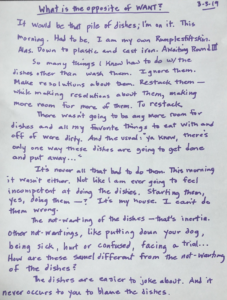 What is the opposite of WANT?
3-3-19
It would be that pile of dishes; I'm on it. This
morning. Had to be. I am my own Rumplestiltskin.
Was. Down to plastic and cast iron. Awaiting Round III
So many things I know how to do w/ the
dishes other than wash them. Ignore them.
Make resolutions about them. Restack them —
while making resolutions about them, making
more room for more of them. To restack.
There wasn't going to be any more room for
dishes and all my favorite things to eat with and
off of were dirty. And the usual: 'ya know, there's
only one way these dishes are going to get done
and put away..."
It's never all that bad to do them. This morning
it wasn't either. Not like I am ever going to feel
incompetent at doing the dishes. Starting them,
yes, doing them —? It's my house. I can't do
them wrong.
The not-wanting of the dishes — that's inertia.
Other not-wantings, like putting down your dog,
being sick, hurt or confused, facing a trial...
How are those same/different from the not-wanting
of the dishes?
The dishes are easier to joke about. And it
never occurs to you to blame the dishes.